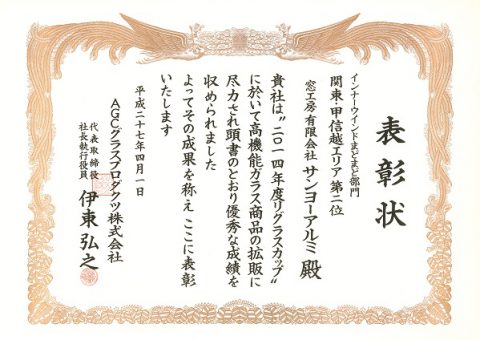 表彰状
インナーウインドまどまど部門
関東・甲信越エリア 第二位
窓工房有限会社 サンヨーアルミ 殿
貴社は〝二〇一四年度リグラスカップ〟
に於いて高機能ガラス商品の拡販に
尽力され頭書のとおり優秀な成績を
収められました
よってその成果を称え ここに表彰
いたします
平成二十七年四月一日
AGCグラスプロダクツ株式会社
代表取締役
社長執行役員 伊東弘之